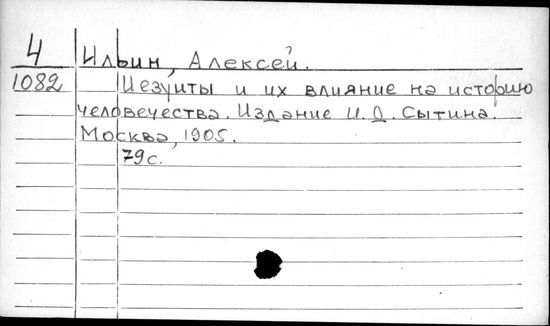 4 Ильин, Алексей.
1082 Иезуиты и их влияние на историю
человечества. Издание И. Д. Сытина.
Москва, 1905.
79 с.